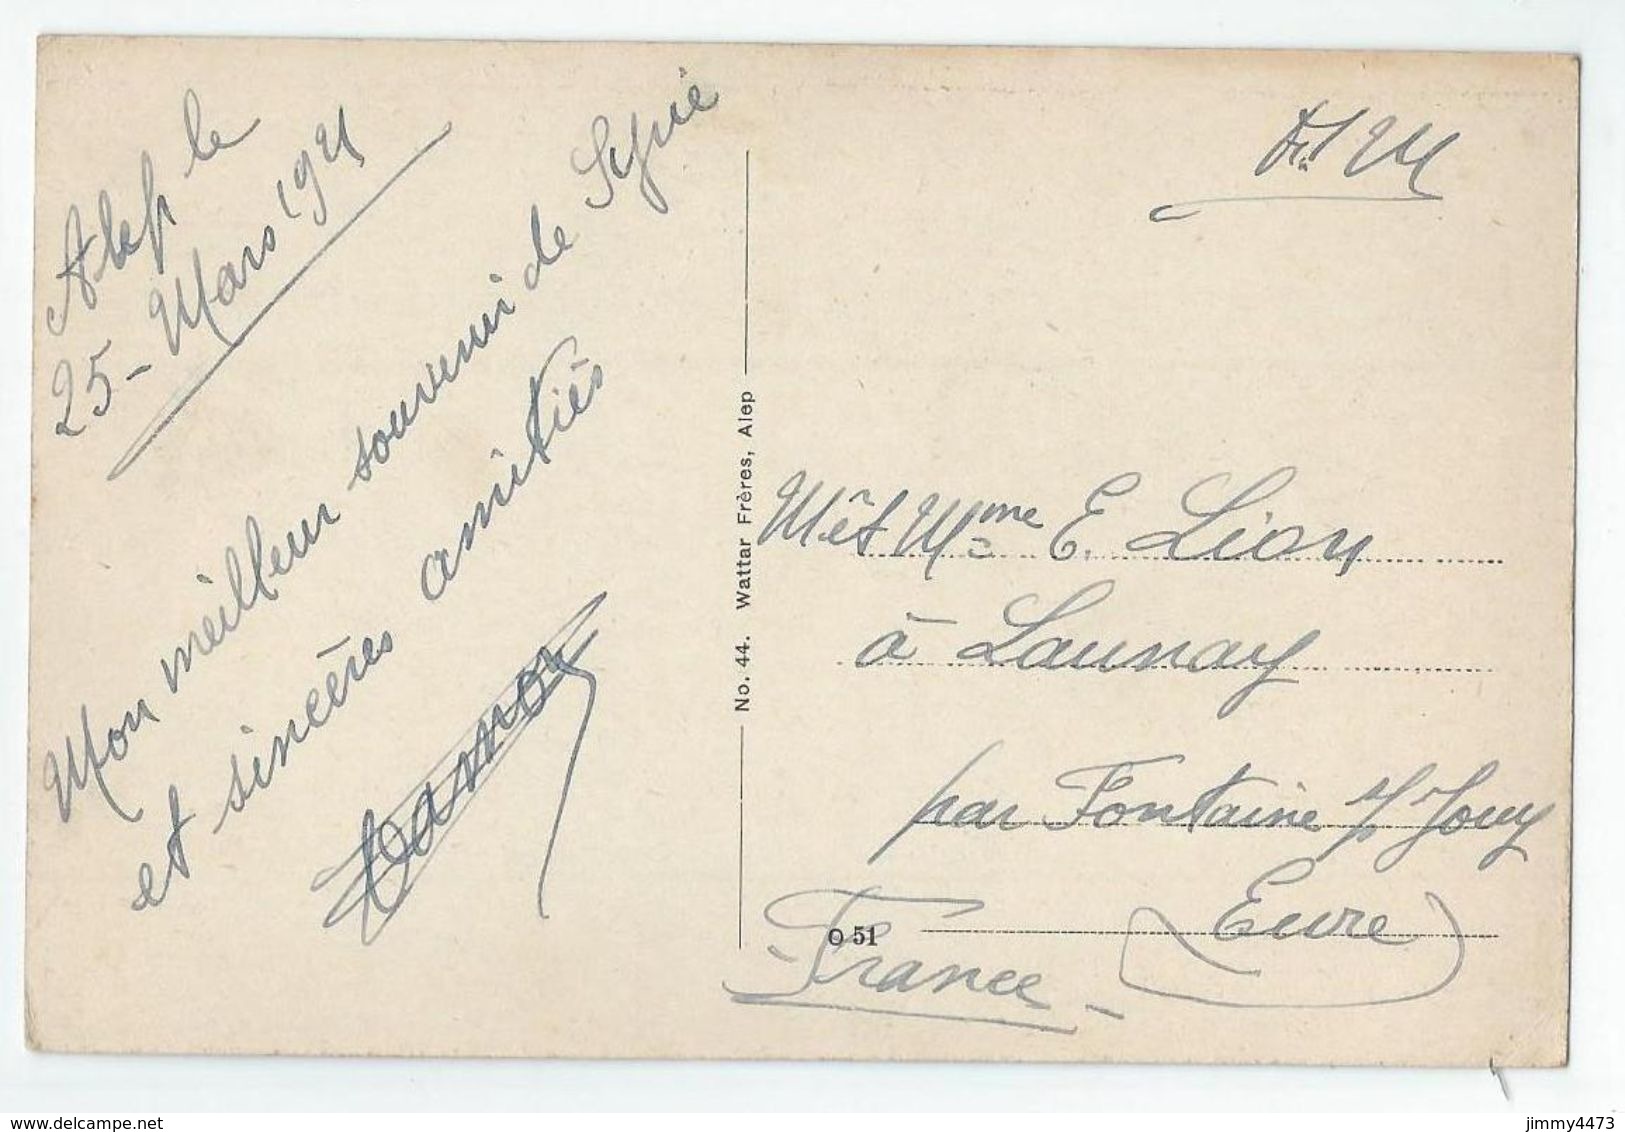 Alep le
25 - Mars 1921
Mon meilleur souvenir de Syrie
et sincères amitiés
No. 44. Wattar Frères, Alep
F.M
Mr et Mme E. Lion
à Launay
par Fontaine s/s Jouy
Eure
France
O 51
delcampe.net
jimmy4473